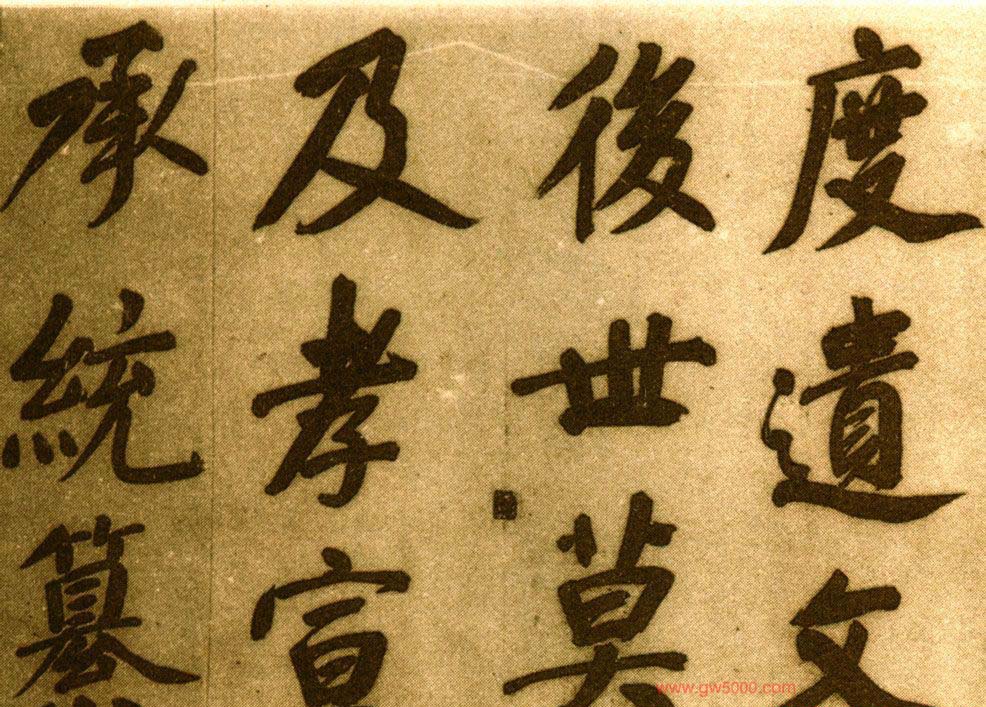 度遺文
後世莫
及孝宣
承統纂
www.gw5000.com